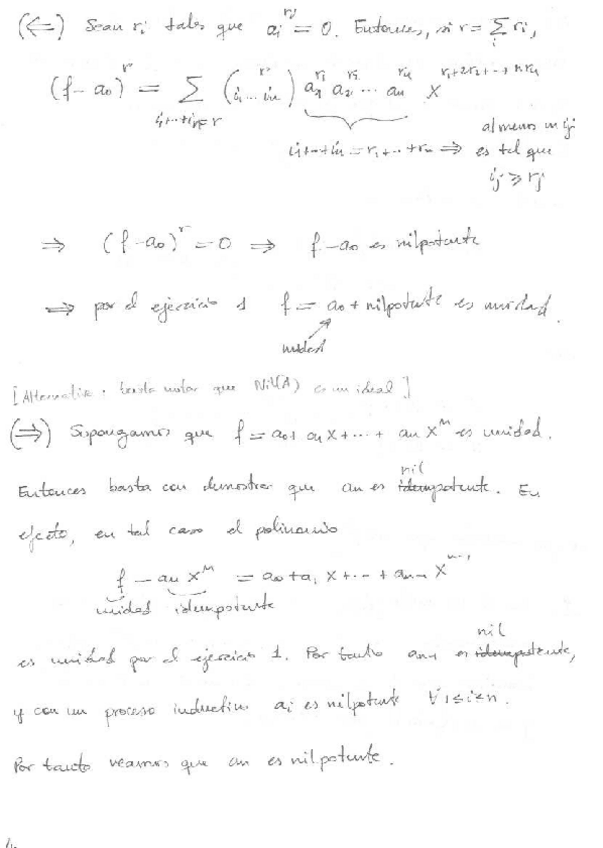 (⇐) Sean ri tales que ai^rj = 0. Entonces, si r = Σ ri,
i
(f - a0)^r = Σ (r i1 ... in) a1^r1 a2^r2 ... an^rn X^r1+2r2+...+nrn
i1+...+in=r
i1+...+in = r1+...+rn ⇒ al menos un ij
es tal que
ij ≥ rj
⇒ (f - a0)^r = 0 ⇒ f - a0 es nilpotente
⇒ por el ejercicio 1 f = a0 + nilpotente es unidad.
unidad
[Alternativa: basta notar que Nil(A) es un ideal]
(⇒) Supongamos que f = a0 + a1 X + ... + an X^n es unidad.
nil
Entonces basta con demostrar que an es idempotente. En
efecto, en tal caso el polinomio
f - an X^n = a0 + a1 X + ... + an-1 X^n-1
unidad idempotente
nil
es unidad por el ejercicio 1. Por tanto an-1 es idempotente,
y con un proceso inductivo ai es nilpotente ∀ 1≤i≤n.
Por tanto veamos que an es nilpotente.